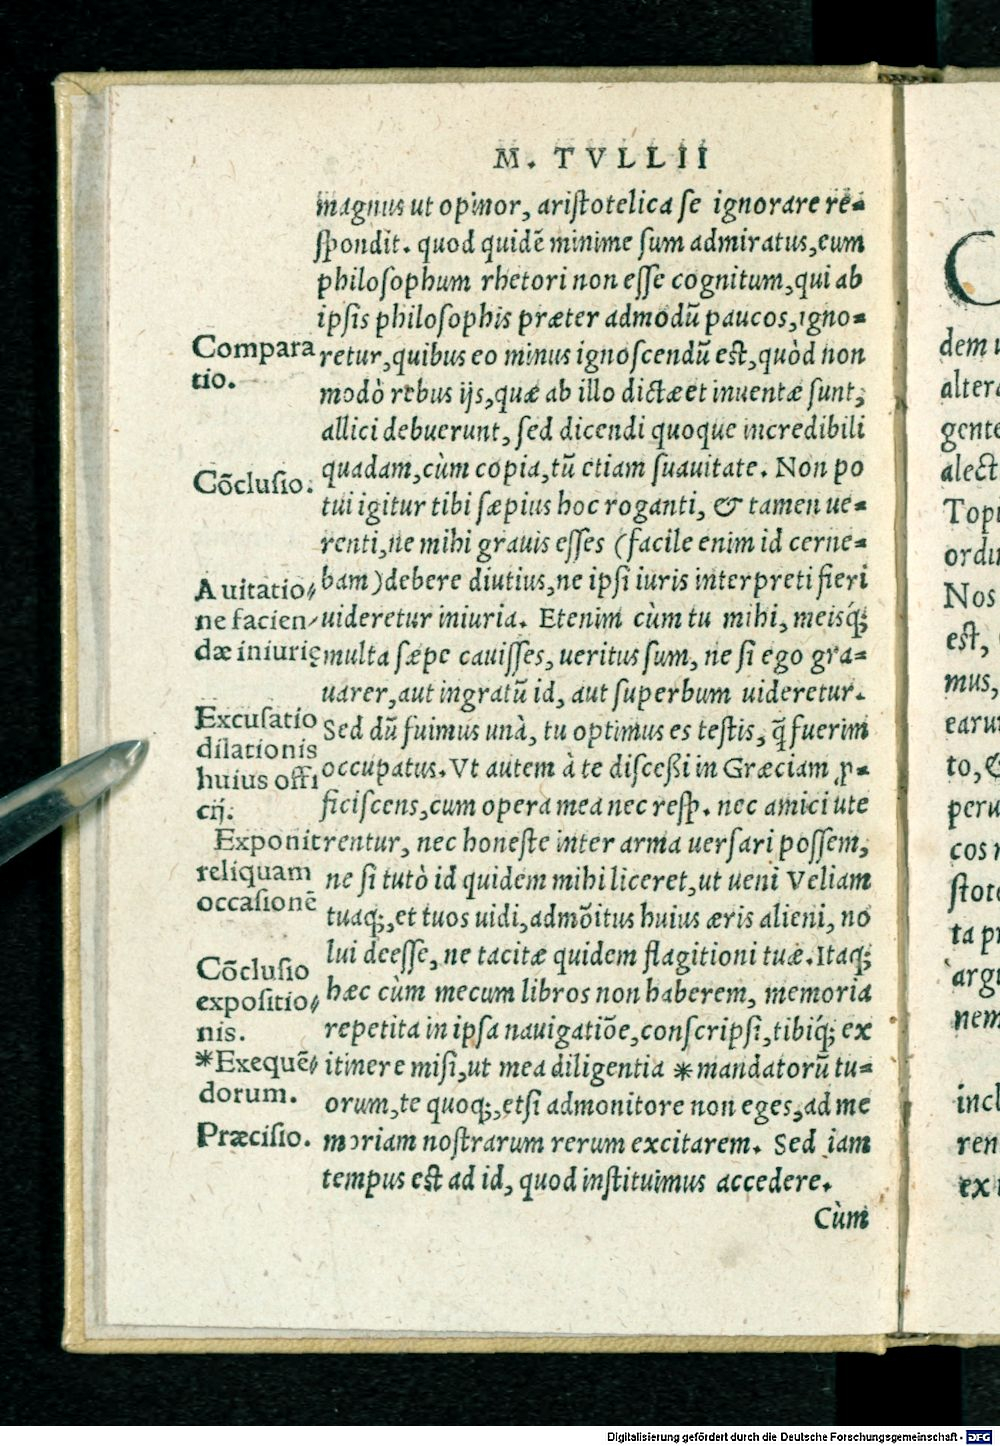 M. TVLLII
magnus ut opinor, aristotelica se ignorare re=
spondit. quod quidē minime sum admiratus, eum
philosophum rhetori non esse cognitum, qui ab
ipsis philosophis præter admodū paucos, igno=
retur, quibus eo minus ignoscendū est, quòd non
modò rebus ijs, quæ ab illo dictæ et inuentæ sunt,
allici debuerunt, sed dicendi quoque incredibili
quadam, cùm copia, tū etiam suauitate. Non po
tui igitur tibi sæpius hoc roganti, & tamen ue=
renti, ne mihi grauis esses (facile enim id cerne=
bam) debere diutius, ne ipsi iuris interpreti fieri
uideretur iniuria. Etenim cùm tu mihi, meisq́;
multa sæpe cauisses, ueritus sum, ne si ego gra=
uarer, aut ingratū id, aut superbum uideretur.
Sed dū fuimus unà, tu optimus es testis, q̄ fuerim
occupatus. Vt autem à te discessi in Græciam ꝓ=
ficiscens, cum opera mea nec resp. nec amici ute
rentur, nec honeste inter arma uersari possem,
ne si tutò id quidem mihi liceret, ut ueni Veliam
tuaq;, et tuos uidi, admōitus huius æris alieni, no
lui deesse, ne tacitæ quidem flagitioni tuæ. Itaq;
hæc cùm mecum libros non haberem, memoria
repetita in ipsa nauigatiōe, conscripsi, tibiq́; ex
itinere misi, ut mea diligentia *mandatorū tu=
orum, te quoq;, etsi admonitore non eges, ad me
moriam nostrarum rerum excitarem. Sed iam
tempus est ad id, quod instituimus accedere.
Cùm
Compara
tio.
Cōclusio.
A uitatio/
ne facien/
dæ iniurię
Excusatio
dilationis
huius offi
cij.
Exponit
reliquam
occasionē
Cōclusio
expositio/
nis.
*Exequē/
dorum.
Præcisio.
C
dem
altera
gente
alect
Topi
ordi
Nos
est,
mus,
earu
to, &
peru
cos
stote
ta pr
argu
nem
incl
ren
ex
Digitalisierung gefördert durch die Deutsche Forschungsgemeinschaft - DFG